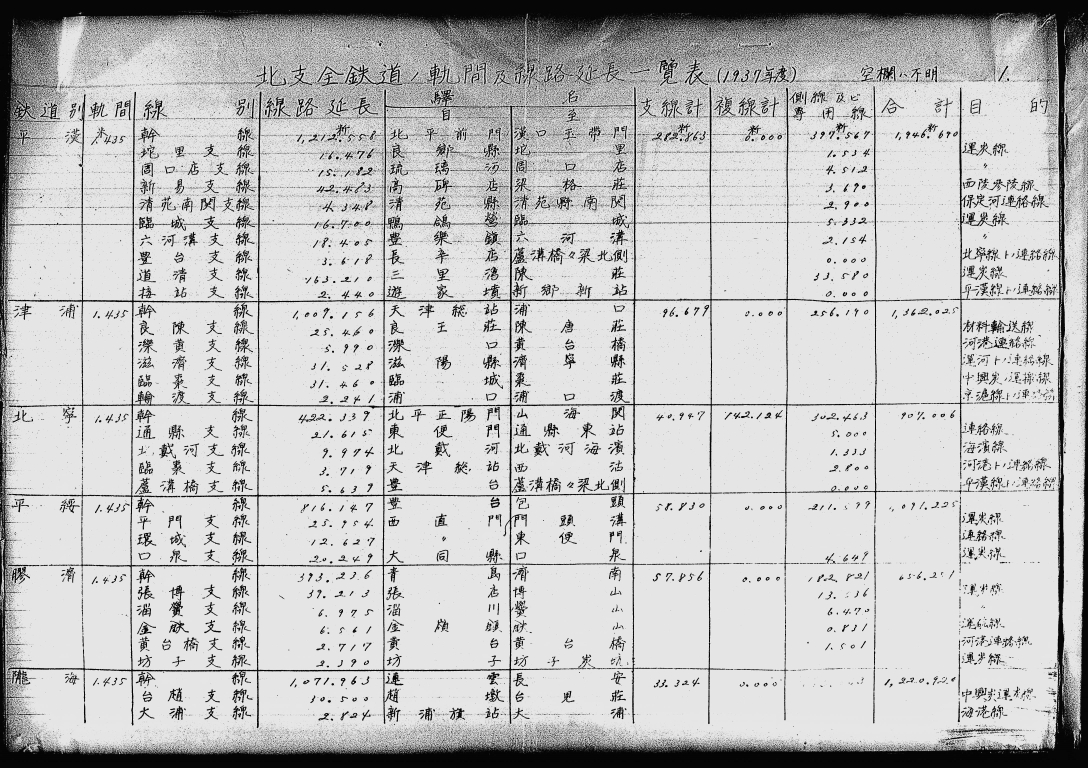 北支全鉄道ノ軌間及線路延長一覧表(1937年度) 空欄ハ不明 1.
鉄道別 軌間 線別 線路延長 驛名 自 至 支線計 複線計 側線及ビ専用線 合計 目的
平漢 米1.435 幹線 1,212.558 北平前門 漢口玉帶門 282.863 0.000 397.567 1,946.690
坨里支線 16.476 良鄉縣 坨里 1.534 運炭線
周口店支線 15.182 琉璃河 周口店 4.512 〃
新易支線 42.483 高碑店 梁格莊 3.690 西陵参陵線
清苑南関支線 4.348 清苑縣 清苑縣南関 2.900 保定河連絡線
臨城支線 16.700 鴨鴿營 臨城 5.332 運炭線
六河溝支線 18.405 豊樂鎮 六河溝 2.154 〃
豊台支線 3.618 長辛店 蘆溝橋々梁北側 0.000 北寧線トノ連絡線
道清支線 163.210 三里湾 陳莊 33.580 運炭線
站支線 2.440 遊家墳 新鄉新站 0.000 平漢線トノ連絡線
津浦 1.435 幹線 1,009.156 天津総站 浦口 96.679 0.000 256.190 1,362.025
良陳支線 25.460 良王莊 陳唐莊 材料輸送線
濼黄支線 5.990 濼口 黄台橋 河港連絡線
滋濟支線 31.528 滋陽縣 濟寧縣 運河トノ連絡線
臨棗支線 31.460 臨城 棗莊 中興炭ノ運炭線
輪渡支線 2.241 浦口 浦口渡 京滬線トノ連絡
北寧 1.435 幹線 422.339 北平正陽門 山海関 40.947 142.124 302.463 907.006
通縣支線 21.615 東便門 通縣東站 5.000 連絡線
北戴河支線 9.974 北戴河 北戴河海濱 1.333 海濱線
臨棗支線 3.719 天津総站 西沽 2.800 河港トノ連絡線
蘆溝橋支線 5.639 豊台 蘆溝橋々梁北側 0.000 平漢線トノ連絡線
平綏 1.435 幹線 816.147 豊台 包頭 58.830 0.000
平門支線 25.954 西直門 門頭溝 運炭線
環城支線 12.627 〃 東便門 連絡線
口泉支線 20.249 大同縣 口泉 4.649 運炭線
膠濟 1.435 幹線 393.236 青島 濟南 57.856 0.000 182.821
張博支線 39.213 張店 博山 運炭線
淄黌支線 6.975 淄川 黌山 6.470 〃
金支線 6.561 金嶺鎮 山 0.831
黄台橋支線 2.717 黄台 黄台橋 1.501 河港連絡線
坊子支線 2.390 坊子 坊子炭坑 運炭線
隴海 1.435 幹線 1,071.963 連雲 長安 33.324 0.000 1,220.920
台趙支線 30.500 趙墩 台児莊 中興炭運炭線
大浦支線 2.824 新浦旗站 大浦 海港線